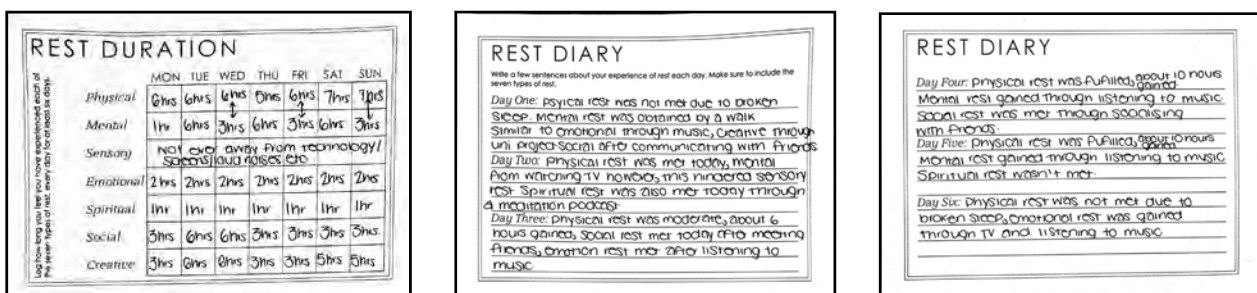 REST DURATION
Log how long you feel you have experienced each of
the seven types of rest, every day for at least six days.
MON TUE WED THU FRI SAT SUN
Physical 6hrs 6hrs 6hrs 5hrs 6hrs 7hrs 7hrs
Mental 1hr 6hrs 3hrs 6hrs 3hrs 6hrs 3hrs
Sensory Not ever away from technology/
screens/loud noises etc
Emotional 2hrs 2hrs 2hrs 2hrs 2hrs 2hrs 2hrs
Spiritual 1hr 1hr 1hr 1hr 1hr 1hr 1hr
Social 3hrs 6hrs 6hrs 3hrs 3hrs 3hrs 3hrs
Creative 3hrs 6hrs 6hrs 3hrs 3hrs 5hrs 5hrs
REST DIARY
Write a few sentences about your experience of rest each day. Make sure to include the
seven types of rest.
Day One: psyical rest was not met due to broken
sleep. Mental rest was obtained by a walk
similar to emotional through music, creative through
uni project social after communicating with friends
Day Two: physical rest was met today, mental
from watching TV however, this hindered sensory
rest Spiritual rest was also met today through
a meditation podcast
Day Three: physical rest was moderate, about 6
hours gained, social rest met today after meeting
friends, emotion rest met after listening to
music
REST DIARY
Day Four: physical rest was fufilled, about 10 hours
gained
Mental rest gained through listening to music
social rest was met through socialising
with friends.
Day Five: physical rest was fufilled, about 10 hours
gained
Mental rest gained through listening to music
Spiritual rest wasn't met.
Day Six: physical rest was not met due to
broken sleep, emotional rest was gained
through TV and listening to music